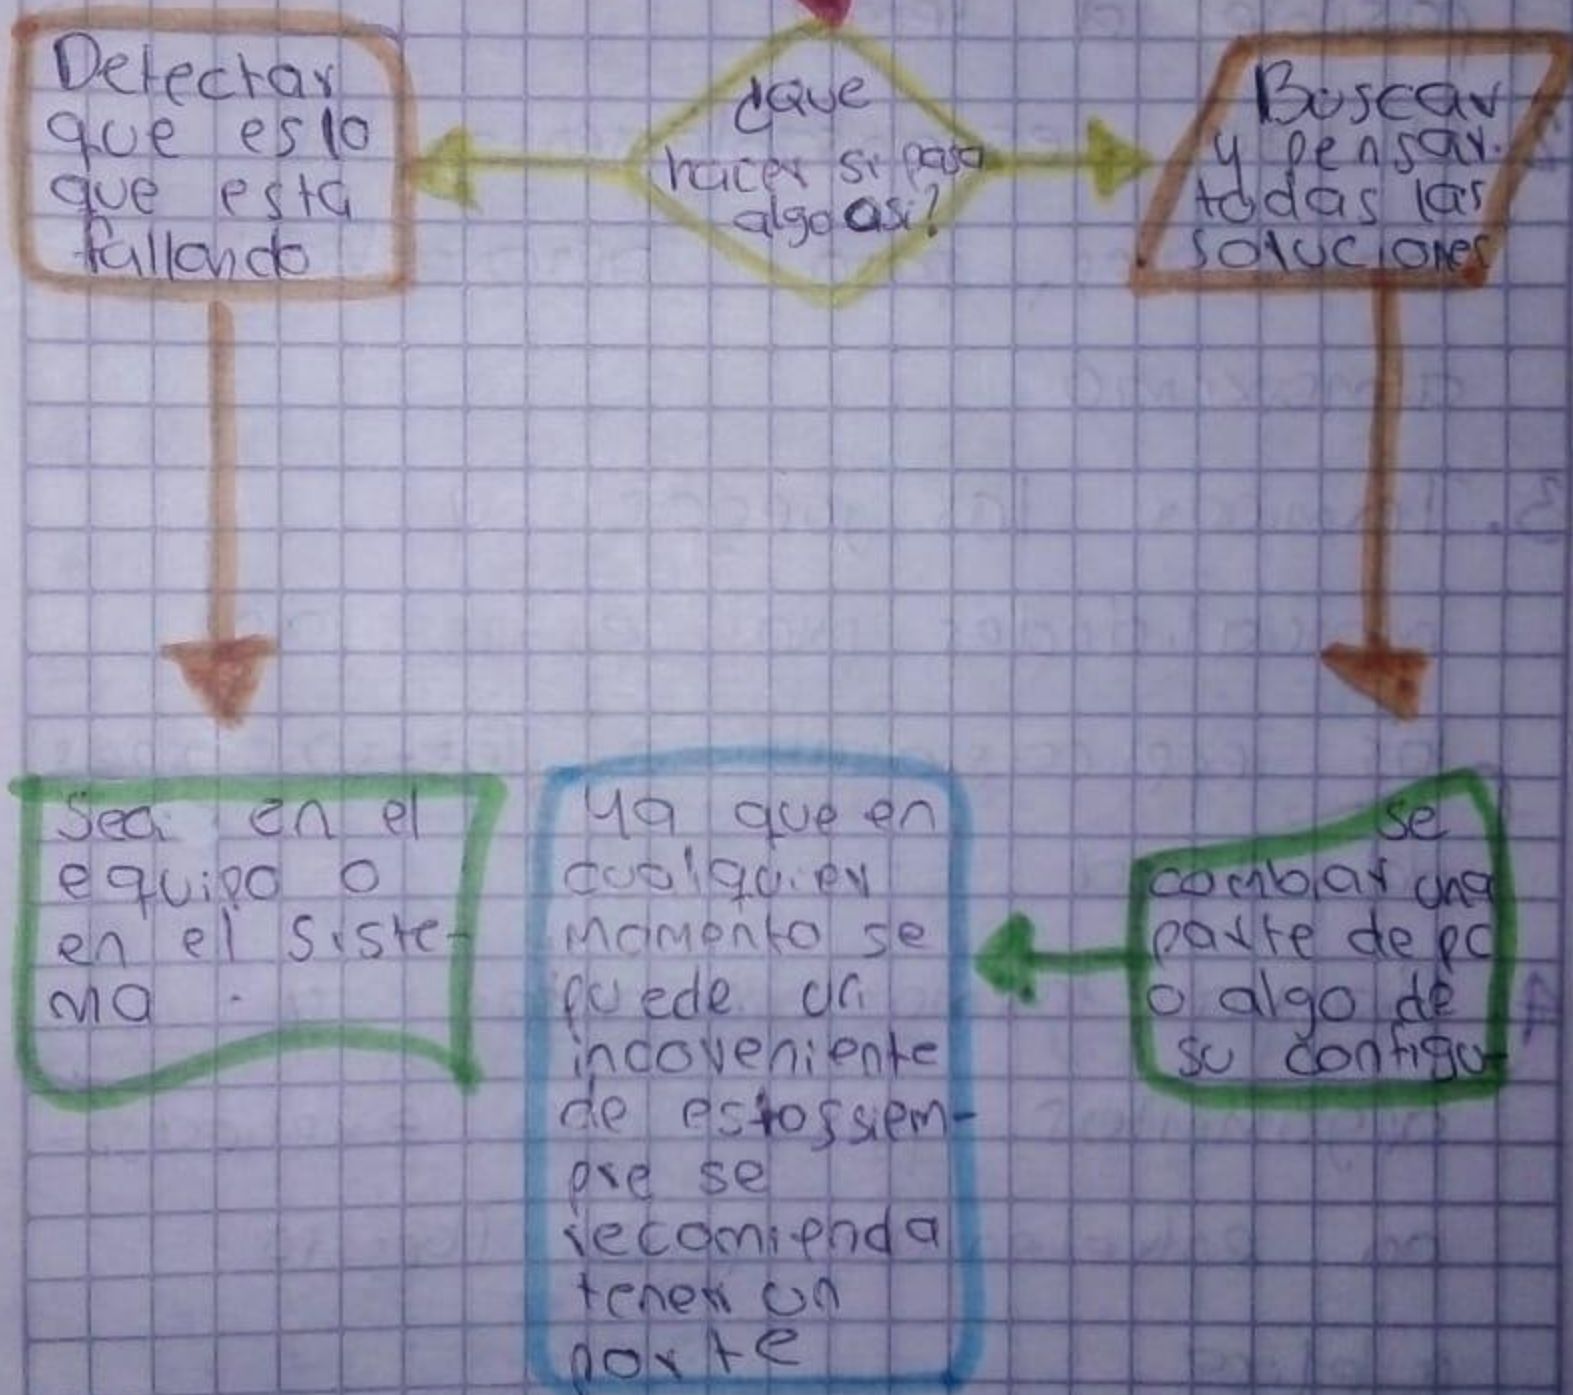 Detectar
que es lo
que esta
fallando
¿que
hacer si pasa
algo asi?
Buscar
y pensar
todas las
soluciones
Sea en el
equipo o
en el siste-
ma.
Ya que en
cualquier
momento se
puede un
incoveniente
de estos siem-
pre se
recomienda
tener un
norte
se
combiar una
parte de pc
o algo de
su configu-